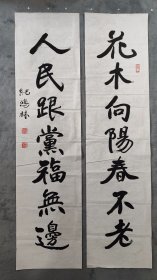 花木向陽春不老
人民跟黨福無邊